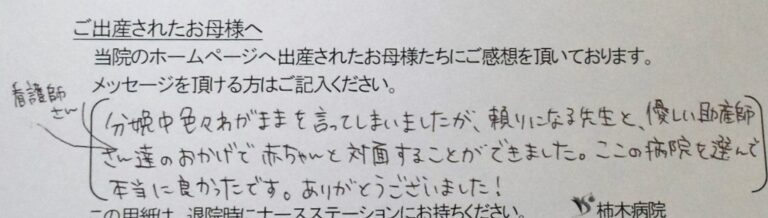 ご出産されたお母様へ
当院のホームページへ出産されたお母様たちにご感想を頂いております。
メッセージを頂ける方はご記入ください。
看護師
さん
分娩中色々わがままを言ってしまいましたが、頼りになる先生と、優しい助産師
さん達のおかげで赤ちゃんと対面することができました。ここの病院を選んで
本当に良かったです。ありがとうございました！
この用紙は、退院時にナースステーションにお持ちください。
柿木病院